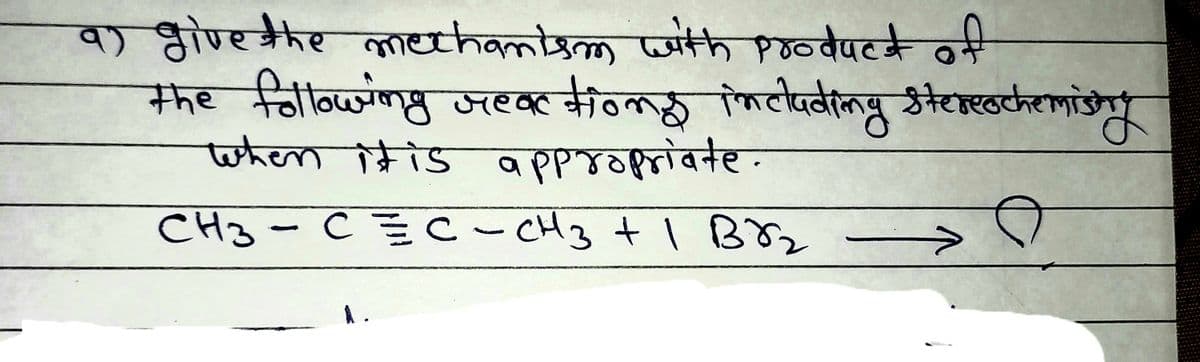 a) give the mechanism with product of
the following reactions including stereochemistry
when it is appropriate.
CH3 - C ≡ C - CH3 + 1 Br2 → ?